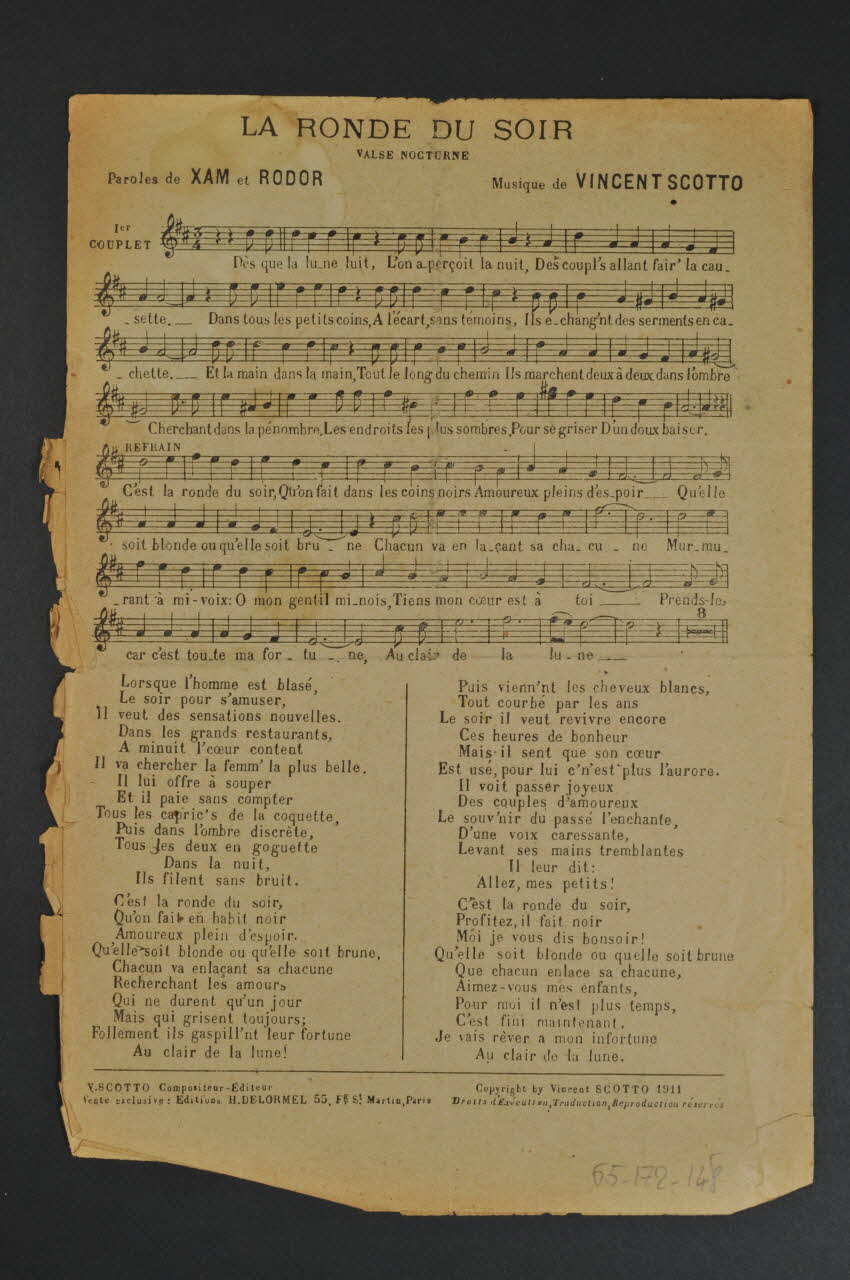 LA RONDE DU SOIR
VALSE NOCTURNE
Paroles de XAM et RODOR
Musique de VINCENT SCOTTO
1er COUPLET
3/4
Dès que la lu_ne luit, L'on a_perçoit la nuit, Des coupl's allant fair' la cau_
_sette.__ Dans tous les petits coins, A l'écart, sans témoins, Ils é_chang'nt des serments en ca_
_chette.__ Et la main dans la main, Tout le long du chemin Ils marchent deux à deux dans l'ombre
Cherchant dans la pénombre, Les endroits les plus sombres, Pour se griser D'un doux baiser.
REFRAIN
C'est la ronde du soir, Qu'on fait dans les coins noirs Amoureux pleins d'es_poir__ Qu'elle
soit blonde ou qu'elle soit bru_ne Chacun va en la_çant sa cha_cu_ne Mur_mu_
_rant à mi-voix: O mon gentil mi_nois, Tiens mon cœur est à toi__ Prends-le,
8
car c'est tou_te ma for_tu_ne, Au clair de la lu_ne__
Lorsque l'homme est blasé,
Le soir pour s'amuser,
Il veut des sensations nouvelles.
Dans les grands restaurants,
A minuit l'cœur content
Il va chercher la femm' la plus belle.
Il lui offre à souper
Et il paie sans compter
Tous les capric's de la coquette,
Puis dans l'ombre discrète,
Tous les deux en goguette
Dans la nuit,
Ils filent sans bruit.
C'est la ronde du soir,
Qu'on fait en habit noir
Amoureux plein d'espoir.
Qu'elle soit blonde ou qu'elle soit brune,
Chacun va enlaçant sa chacune
Recherchant les amours
Qui ne durent qu'un jour
Mais qui grisent toujours;
Follement ils gaspill'nt leur fortune
Au clair de la lune!
Puis vienn'nt les cheveux blancs,
Tout courbé par les ans
Le soir il veut revivre encore
Ces heures de bonheur
Mais il sent que son cœur
Est usé, pour lui c'n'est plus l'aurore.
Il voit passer joyeux
Des couples d'amoureux
Le souv'nir du passé l'enchante,
D'une voix caressante,
Levant ses mains tremblantes
Il leur dit:
Allez, mes petits!
C'est la ronde du soir,
Profitez, il fait noir
Moi je vous dis bonsoir!
Qu'elle soit blonde ou quelle soit brune
Que chacun enlace sa chacune,
Aimez-vous mes enfants,
Pour moi il n'est plus temps,
C'est fini maintenant.
Je vais rêver a mon infortune
Au clair de la lune.
V. SCOTTO Compositeur-Editeur
Vente exclusive: Editions H. DELORMEL 55, Fg St Martin, Paris
Copyright by Vincent SCOTTO 1911
Droits d'Exécution, Traduction, Reproduction réservés
65-172-148